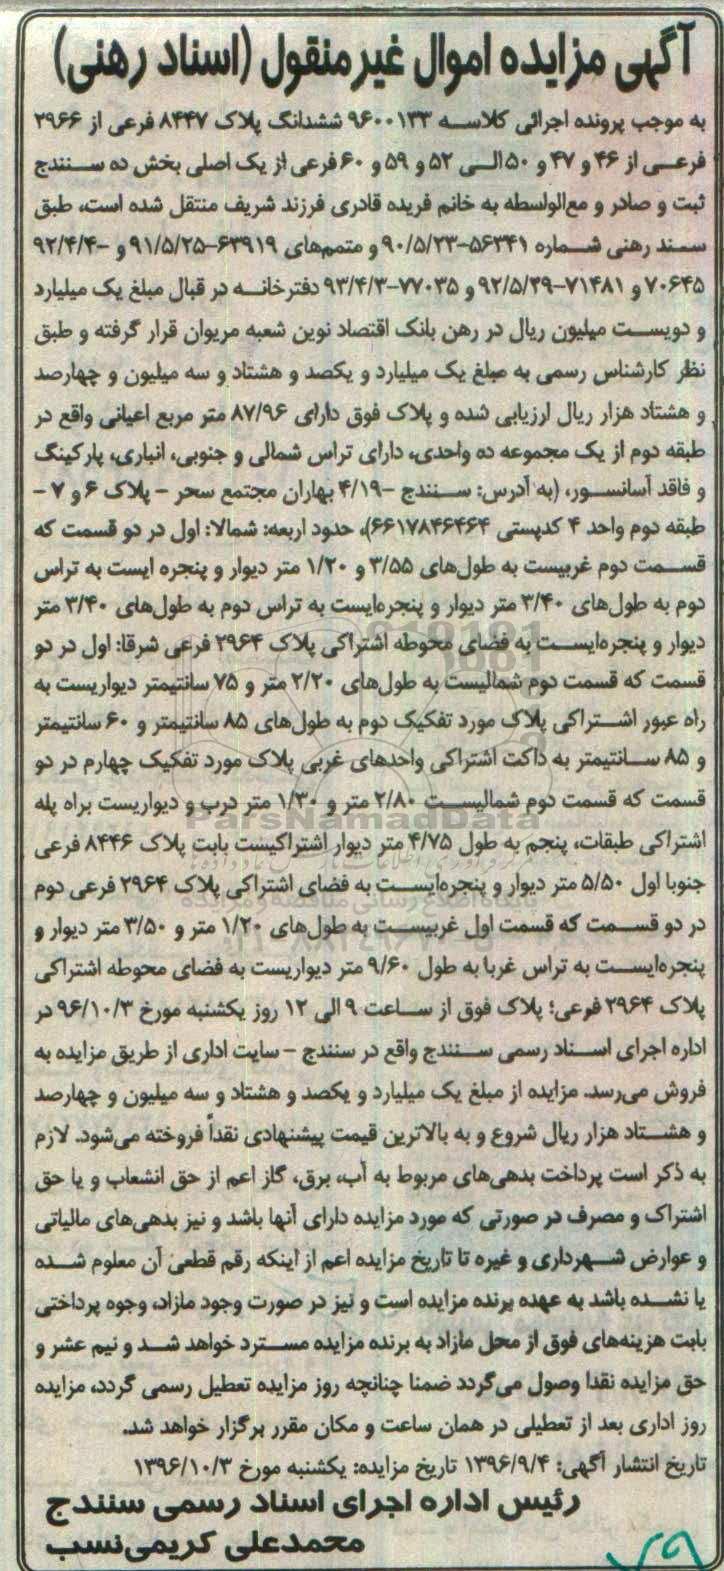 آگهی مزایده اموال غیرمنقول (اسناد رهنی)
به موجب پرونده اجرائی کلاسه ۹۶۰۰۱۳۳ ششدانگ پلاک ۸۴۴۷ فرعی از ۲۹۶۶
فرعی از ۴۶ و ۴۷ و ۵۰ الی ۵۲ و ۵۹ و ۶۰ فرعی از یک اصلی بخش ده سنندج
ثبت و صادر و مع‌الواسطه به خانم فریده قادری فرزند شریف منتقل شده است، طبق
سند رهنی شماره ۵۶۳۴۱-۹۰/۵/۲۳ و متمم‌های ۶۳۹۱۹-۹۱/۵/۲۵ و -۹۲/۴/۴
۷۰۶۴۵ و ۷۱۴۸۱-۹۲/۵/۲۹ و ۷۷۰۳۵-۹۳/۴/۳ دفترخانه در قبال مبلغ یک میلیارد
و دویست میلیون ریال در رهن بانک اقتصاد نوین شعبه مریوان قرار گرفته و طبق
نظر کارشناس رسمی به مبلغ یک میلیارد و یکصد و هشتاد و سه میلیون و چهارصد
و هشتاد هزار ریال ارزیابی شده و پلاک فوق دارای ۸۷/۹۶ متر مربع اعیانی واقع در
طبقه دوم از یک مجموعه ده واحدی، دارای تراس شمالی و جنوبی، انباری، پارکینگ
و فاقد آسانسور، (به آدرس: سنندج -۴/۱۹ بهاران مجتمع سحر - پلاک ۶ و ۷ -
طبقه دوم واحد ۴ کدپستی ۶۶۱۷۸۴۶۴۶۴)، حدود اربعه: شمالا: اول در دو قسمت که
قسمت دوم غربیست به طول‌های ۳/۵۵ و ۱/۲۰ متر دیوار و پنجره ایست به تراس
دوم به طول‌های ۳/۴۰ متر دیوار و پنجره‌ایست به تراس دوم به طول‌های ۳/۴۰ متر
دیوار و پنجره‌ایست به فضای محوطه اشتراکی پلاک ۲۹۶۴ فرعی شرقا: اول در دو
قسمت که قسمت دوم شمالیست به طول‌های ۲/۲۰ متر و ۷۵ سانتیمتر دیواریست به
راه عبور اشتراکی پلاک مورد تفکیک دوم به طول‌های ۸۵ سانتیمتر و ۶۰ سانتیمتر
و ۸۵ سانتیمتر به داکت اشتراکی واحدهای غربی پلاک مورد تفکیک چهارم در دو
قسمت که قسمت دوم شمالیست ۲/۸۰ متر و ۱/۳۰ متر درب و دیواریست براه پله
ParsNamadData
اشتراکی طبقات، پنجم به طول ۴/۷۵ متر دیوار اشتراکیست بابت پلاک ۸۴۴۶ فرعی
جنوبا اول ۵/۵۰ متر دیوار و پنجره‌ایست به فضای اشتراکی پلاک ۲۹۶۴ فرعی دوم
در دو قسمت که قسمت اول غربیست به طول‌های ۱/۲۰ متر و ۳/۵۰ متر دیوار و
پنجره‌ایست به تراس غربا به طول ۹/۶۰ متر دیواریست به فضای محوطه اشتراکی
پلاک ۲۹۶۴ فرعی؛ پلاک فوق از ساعت ۹ الی ۱۲ روز یکشنبه مورخ ۹۶/۱۰/۳ در
اداره اجرای اسناد رسمی سنندج واقع در سنندج - سایت اداری از طریق مزایده به
فروش می‌رسد. مزایده از مبلغ یک میلیارد و یکصد و هشتاد و سه میلیون و چهارصد
و هشتاد هزار ریال شروع و به بالاترین قیمت پیشنهادی نقداً فروخته می‌شود. لازم
به ذکر است پرداخت بدهی‌های مربوط به آب، برق، گاز اعم از حق انشعاب و یا حق
اشتراک و مصرف در صورتی که مورد مزایده دارای آنها باشد و نیز بدهی‌های مالیاتی
و عوارض شهرداری و غیره تا تاریخ مزایده اعم از اینکه رقم قطعی آن معلوم شده
یا نشده باشد به عهده برنده مزایده است و نیز در صورت وجود مازاد، وجوه پرداختی
بابت هزینه‌های فوق از محل مازاد به برنده مزایده مسترد خواهد شد و نیم عشر و
حق مزایده نقدا وصول می‌گردد ضمنا چنانچه روز مزایده تعطیل رسمی گردد، مزایده
روز اداری بعد از تعطیلی در همان ساعت و مکان مقرر برگزار خواهد شد.
تاریخ انتشار آگهی: ۱۳۹۶/۹/۴ تاریخ مزایده: یکشنبه مورخ ۱۳۹۶/۱۰/۳
رئیس اداره اجرای اسناد رسمی سنندج
محمدعلی کریمی‌نسب